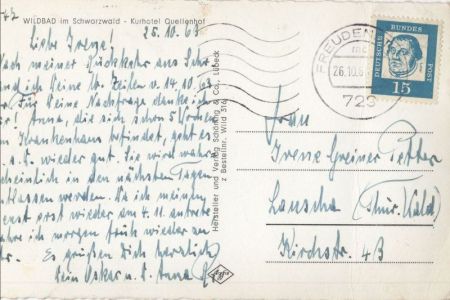 WILDBAD im Schwarzwald - Kurhotel Quellenhof
25.10.6
Liebe Irene!
nach meiner Rückkehr aus
und ich Deine Zeilen v. 14.10.
Für Deine Nachfrage danke ich
Anna, die sich schon 5 Wochen
Krankenhaus befindet, geht es
wieder gut. Sie wird wahr
scheinlich in den nächsten Tagen
tlassen werden. Da ich meinen
enst erst wieder am 4.11. antrete
ahre ich morgen früh wieder
Es grüßen Dich herzlich
Dein Oskar u. Anna
Hersteller und Verlag Schöning & Co., Lübeck
z Bestellnr. Wild 516
FREUDEN
26.10.6
729
DEUTSCHE BUNDESPOST
15
Frau
Irene Greiner Petter
Lauscha (Thür. Wald)
Kirchstr. 43
Agfa